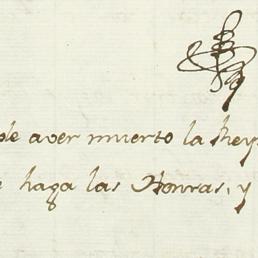 de aver muerto la Rey
haga las Honras, y